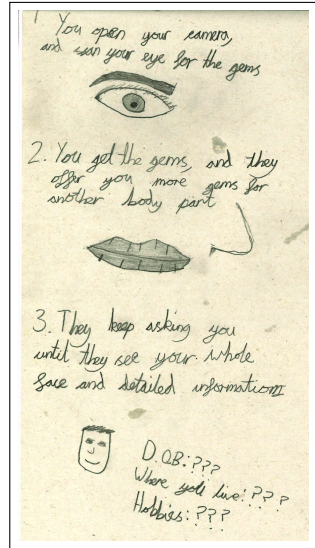 1. You open your camera,
and scan your eye for the gems
2. You get the gems, and they
offer you more gems for
another body part
3. They keep asking you
until they see your whole
face and detailed information
D.OB:???
Where you live:???
Hobbies:???